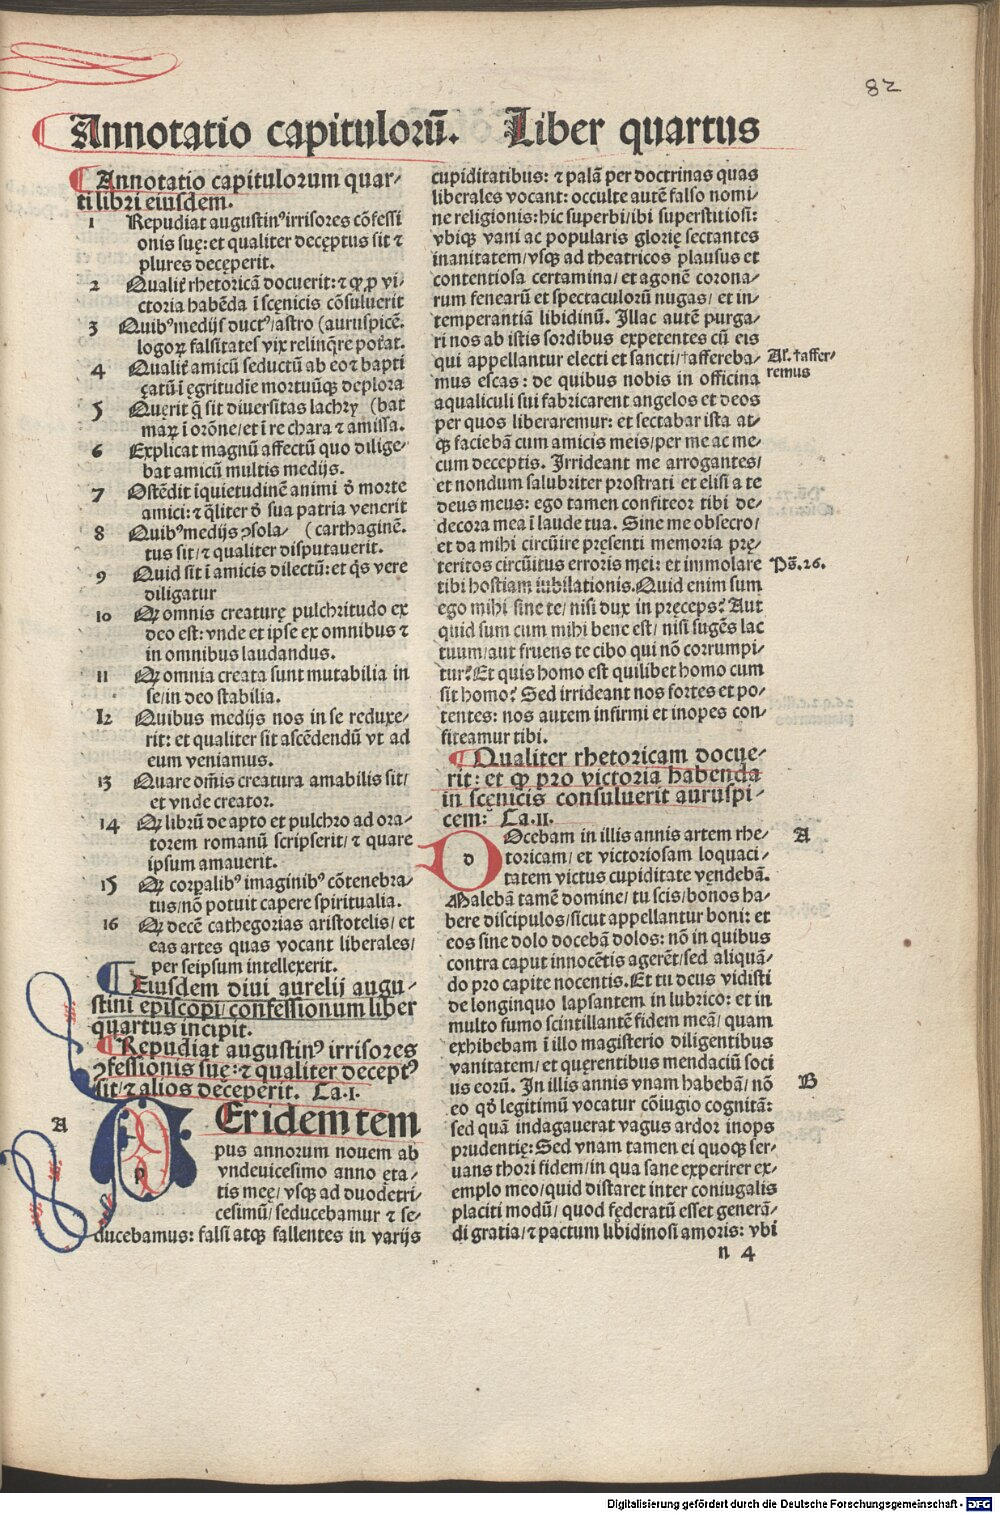 82
Annotatio capitulorū. Liber quartus
¶ Annotatio capitulorum quar-
ti libri eiusdem.
1 Repudiat augustinꝰ irrisores cōfessi
onis suę: et qualiter dęceptus sit ⁊
plures decęperit.
2 Qualiť rhetoricā docuerit: ⁊ ꝙ ꝓ vi-
ctoria habēda ī scęnicis cōsuluerit
3 Quibꝰ medijs ductꝰ/ astro (auruspicē.
logoꝝ falsitates vix relinq̄re poťat.
4 Qualiť amicū seductū ab eo ⁊ bapti
çatū ī ęgritudīe mortuūqꝫ deplora
5 Quęrit q̄ sit diuersitas lachry (bat
maꝝ ī orōne/ et ī re chara ⁊ amissa.
6 Explicat magnū affectū quo dilige-
bat amicū multis medijs.
7 Ostēdit īquietudinē animi ō morte
amici: ⁊ q̄liter ō sua patria venerit
8 Quibꝰ medijs ꝯsola- (carthaginē.
tus sit/ ⁊ qualiter disputauerit.
9 Quid sit ī amicis dilectū: et q̄s vere
diligatur
10 Qꝫ omnis creaturę pulchritudo ex
deo est: vnde et ipse ex omnibus ⁊
in omnibus laudandus.
11 Qꝫ omnia creata sunt mutabilia in
se/ in deo stabilia.
12 Quibus medijs nos in se reduxe-
rit: et qualiter sit ascēdendū vt ad
eum veniamus.
13 Quare om̄is creatura amabilis sit/
et vnde creator.
14 Qꝫ librū de apto et pulchro ad ora-
torem romanū scripserit/ ⁊ quare
ipsum amauerit.
15 Qꝫ corꝑalibꝰ imaginibꝰ cōtenebra-
tus/ nō potuit capere spiritualia.
16 Qꝫ decē cathegorias aristotelis/ et
eas artes quas vocant liberales/
per seipsum intellexerit.
¶ Eiusdem diui aurelij augu-
stini episcopi/ confessionum liber
quartus incipit.
¶ Repudiat augustinꝰ irrisores
ꝯfessionis suę: ⁊ qualiter deceptꝰ
sit/ ⁊ alios deceperit. Ca.I.
A
p
Er idem tem
pus annorum nouem ab
vndeuicesimo anno ęta-
tis meę/ vsqꝫ ad duodetri-
cesimū/ seducebamur ⁊ se-
ducebamus: falsi atqꝫ fallentes in varijs
cupiditatibus: ⁊ palā per doctrinas quas
liberales vocant: occulte autē falso nomi-
ne religionis: hic superbi/ ibi superstitiosi:
vbiqꝫ vani ac popularis glorię sectantes
inanitatem/ vsqꝫ ad theatricos plausus et
contentiosa certamina/ et agonē corona-
rum fenearū et spectaculorū nugas/ et in-
temperantiā libidinū. Illac autē purga-
ri nos ab istis sordibus expetentes cū eis
qui appellantur electi et sancti/ †affereba-
mus escas: de quibus nobis in officina
aqualiculi sui fabricarent angelos et deos
per quos liberaremur: et sectabar ista at-
qꝫ faciebā cum amicis meis/ per me ac me-
cum deceptis. Irrideant me arrogantes/
et nondum salubriter prostrati et elisi a te
deus meus: ego tamen confiteor tibi de-
decora mea ī laude tua. Sine me obsecro/
et da mihi circūire pręsenti memoria prę-
teritos circūitus erroris mei: et immolare
tibi hostiam iubilationis. Quid enim sum
ego mihi sine te/ nisi dux in pręceps? Aut
quid sum cum mihi bene est/ nisi sugēs lac
tuum/ aut fruens te cibo qui nō corrumpi-
tur? Et quis homo est quilibet homo cum
sit homo? Sed irrideant nos fortes et po-
tentes: nos autem infirmi et inopes con-
fiteamur tibi.
Al. †affer-
remus
Pš. 26.
¶ Qualiter rhetoricam docue-
rit: et ꝙ pro victoria habenda
in scęnicis consuluerit auruspi-
cem: Ca.II.
d
A
Ocebam in illis annis artem rhe-
toricam/ et victoriosam loquaci-
tatem victus cupiditate vendebā.
Malebā tamē domine/ tu scis/ bonos ha-
bere discipulos/ sicut appellantur boni: et
eos sine dolo docebā dolos: nō in quibus
contra caput innocētis agerēt/ sed aliquā-
do pro capite nocentis. Et tu deus vidisti
de longinquo lapsantem in lubrico: et in
multo fumo scintillantē fidem meā/ quam
exhibebam ī illo magisterio diligentibus
vanitatem/ et quęrentibus mendaciū soci
us eorū. In illis annis vnam habebā/ nō
B
eo qđ legitimū vocatur cōiugio cognitā:
sed quā indagauerat vagus ardor inops
prudentię: Sed vnam tamen ei quoqꝫ ser-
uans thori fidem/ in qua sane experirer ex-
emplo meo/ quid distaret inter coniugalis
placiti modū/ quod fęderatū esset generā-
di gratia/ ⁊ pactum libidinosi amoris: vbi
n 4
Digitalisierung gefördert durch die Deutsche Forschungsgemeinschaft - DFG